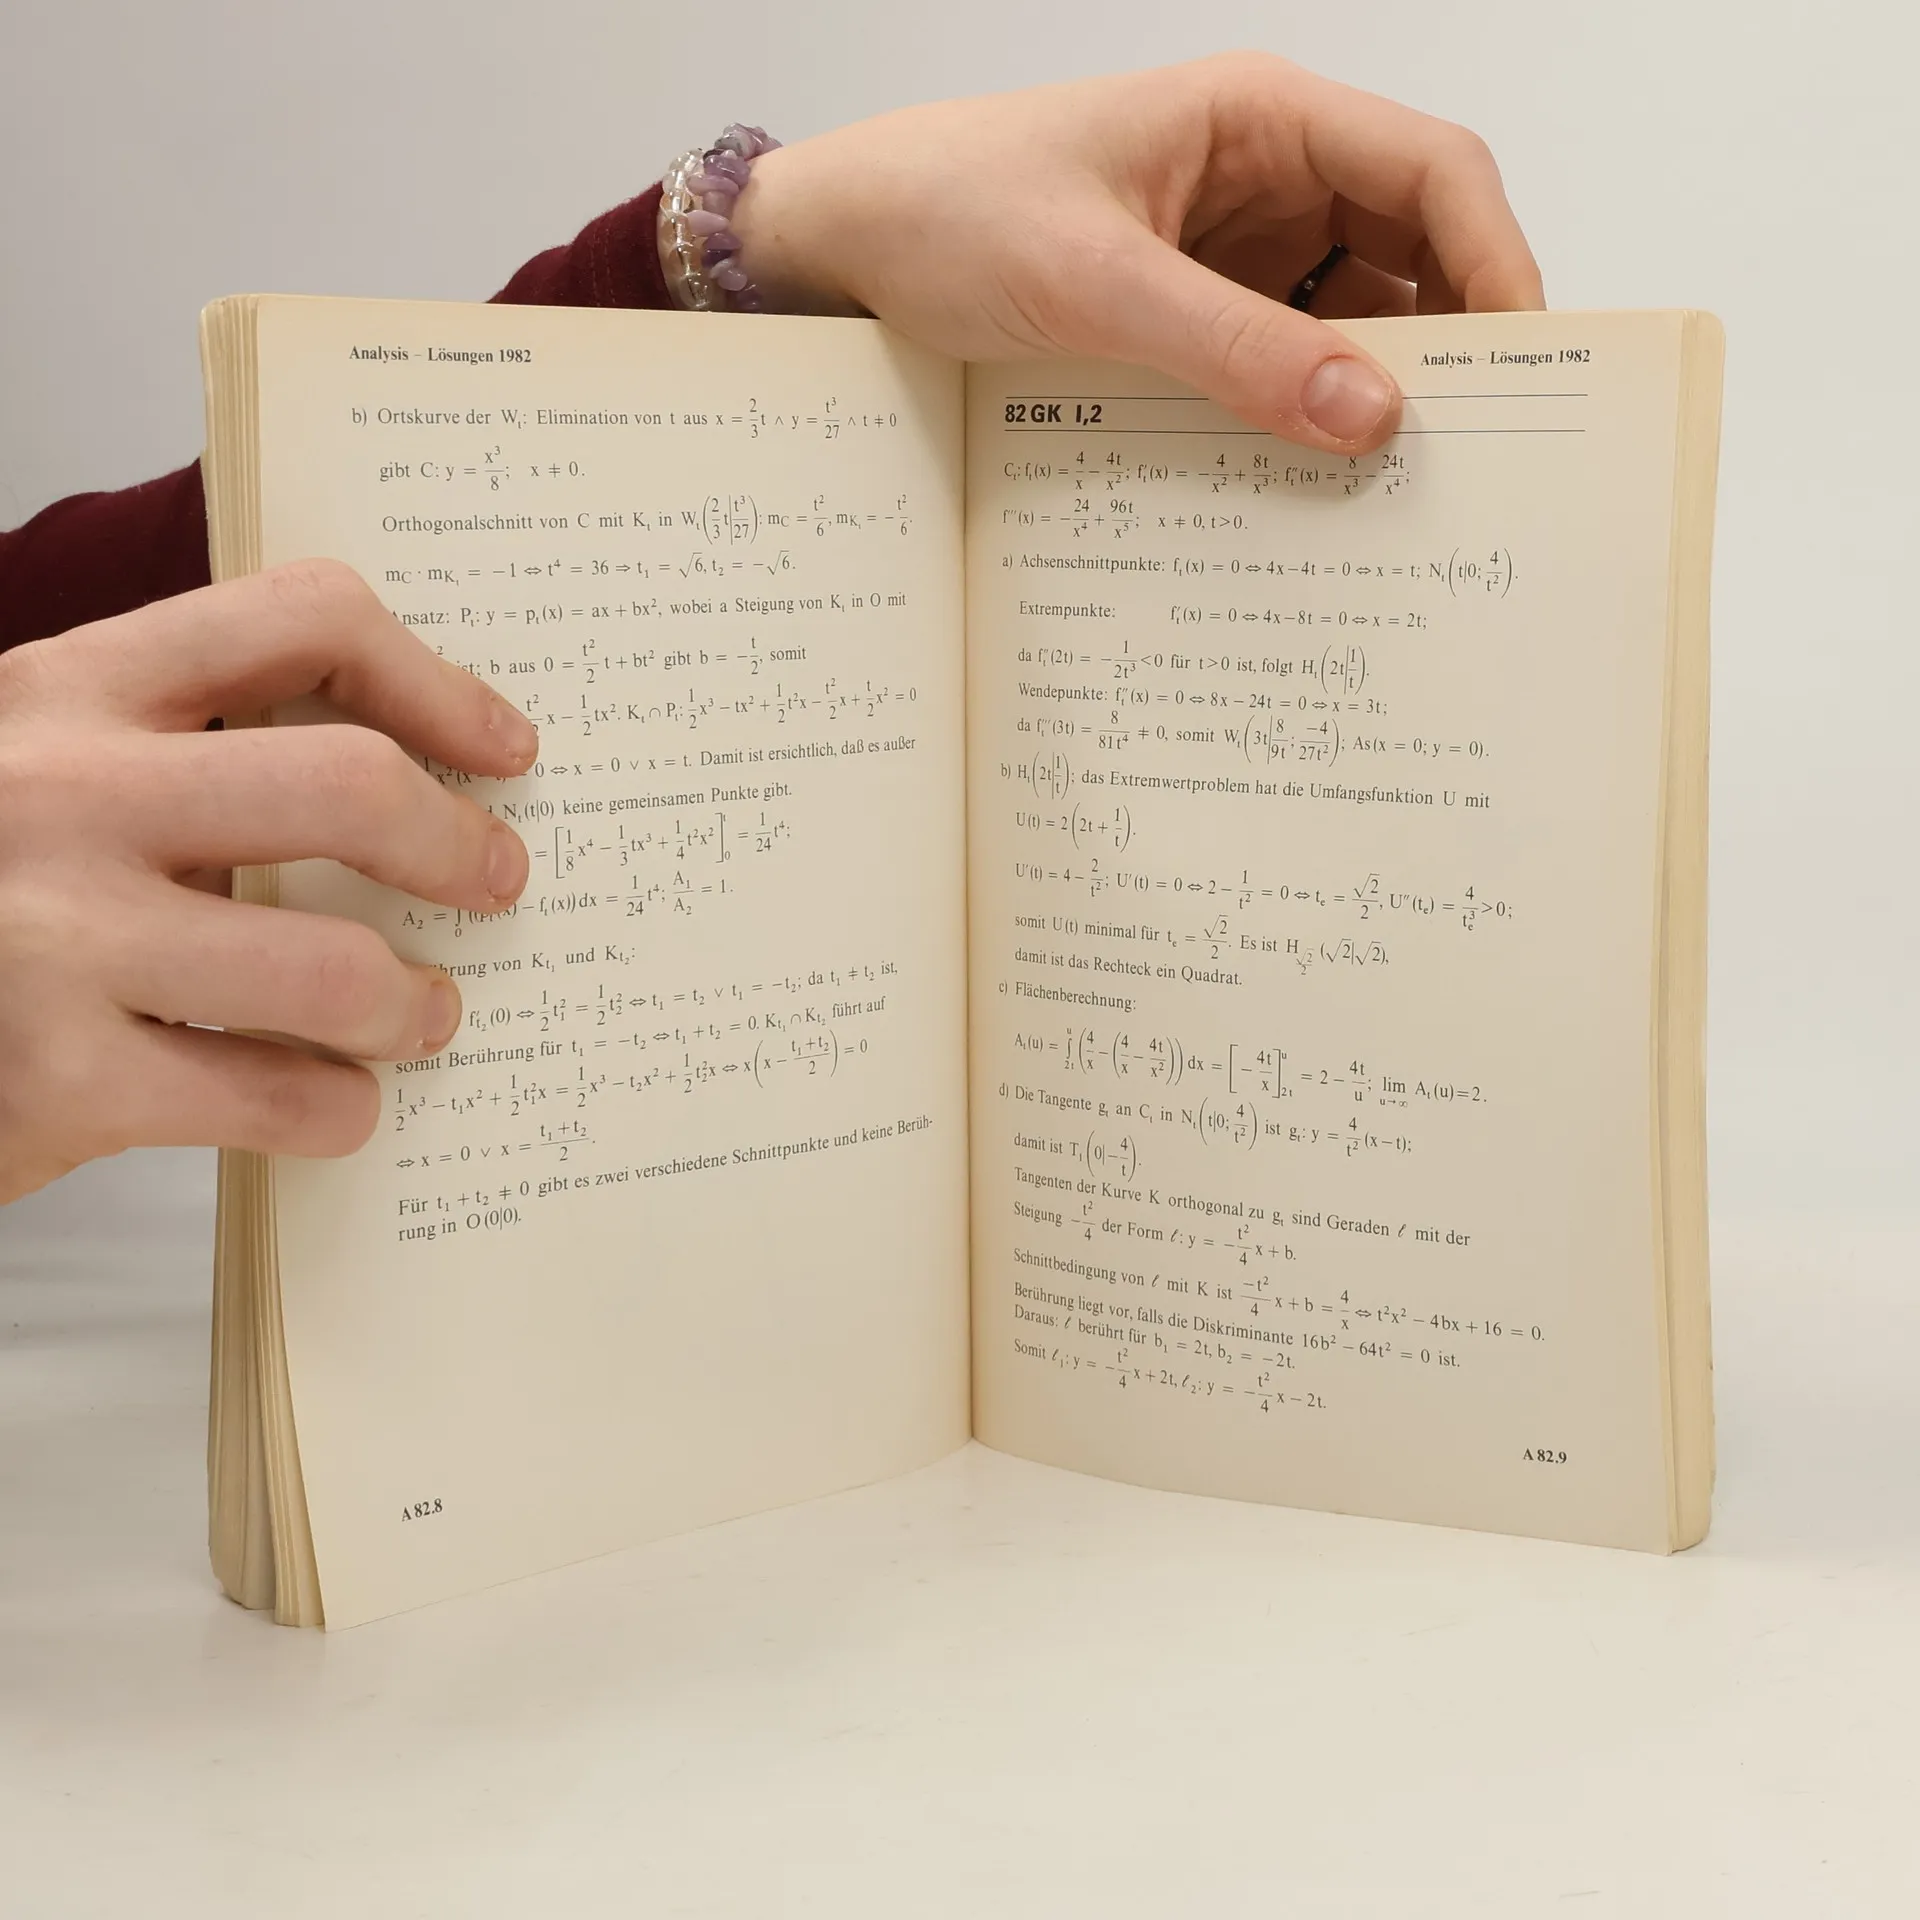 Analysis – Lösungen 1982
b) Ortskurve der Wₜ: Elimination von t aus x = 2/3 t ∧ y = t³/27 ∧ t ≠ 0
gibt C: y = x³/8; x ≠ 0.
Orthogonalschnitt von C mit Kₜ in Wₜ(2/3 t | t³/27): m_C = t²/6, m_Kₜ = −t²/6.
m_C · m_Kₜ = −1 ⇔ t⁴ = 36 ⇒ t₁ = √6, t₂ = −√6.
nsatz: Pₜ: y = pₜ(x) = ax + bx², wobei a Steigung von Kₜ in O mit
ist; b aus 0 = t²/2 t + bt² gibt b = −t/2, somit
t²/2 x − 1/2 tx². Kₜ ∩ Pₜ: 1/2 x³ − tx² + 1/2 t²x − t²/2 x + t/2 x² = 0
0 ⇔ x = 0 ∨ x = t. Damit ist ersichtlich, daß es außer
Nₜ(t|0) keine gemeinsamen Punkte gibt.
= [1/8 x⁴ − 1/3 tx³ + 1/4 t²x²]₀ᵗ = 1/24 t⁴;
A₂ = ∫₀ (pₜ(x) − fₜ(x)) dx = 1/24 t⁴; A₁/A₂ = 1.
hrung von Kt₁ und Kt₂:
f′t₂(0) ⇔ 1/2 t₁² = 1/2 t₂² ⇔ t₁ = t₂ ∨ t₁ = −t₂; da t₁ ≠ t₂ ist,
somit Berührung für t₁ = −t₂ ⇔ t₁ + t₂ = 0. Kt₁ ∩ Kt₂ führt auf
1/2 x³ − t₁x² + 1/2 t₁²x = 1/2 x³ − t₂x² + 1/2 t₂²x ⇔ x(x − (t₁+t₂)/2) = 0
⇔ x = 0 ∨ x = (t₁+t₂)/2.
Für t₁ + t₂ ≠ 0 gibt es zwei verschiedene Schnittpunkte und keine Berüh-
rung in O(0|0).
A 82.8
Analysis – Lösungen 1982
82 GK I,2
Cₜ: fₜ(x) = 4/x − 4t/x²; fₜ′(x) = −4/x² + 8t/x³; fₜ″(x) = 8/x³ − 24t/x⁴;
f‴(x) = −24/x⁴ + 96t/x⁵; x ≠ 0, t>0.
a) Achsenschnittpunkte: fₜ(x) = 0 ⇔ 4x−4t = 0 ⇔ x = t; Nₜ(t|0; 4/t²).
Extrempunkte: fₜ′(x) = 0 ⇔ 4x−8t = 0 ⇔ x = 2t;
da fₜ″(2t) = −1/2t³ <0 für t>0 ist, folgt Hₜ(2t|1/t).
Wendepunkte: fₜ″(x) = 0 ⇔ 8x − 24t = 0 ⇔ x = 3t;
da fₜ‴(3t) = 8/81t⁴ ≠ 0, somit Wₜ(3t|8/9t; −4/27t²); As(x = 0; y = 0).
b) Hₜ(2t|1/t); das Extremwertproblem hat die Umfangsfunktion U mit
U(t) = 2(2t + 1/t).
U′(t) = 4 − 2/t²; U′(t) = 0 ⇔ 2 − 1/t² = 0 ⇔ tₑ = √2/2, U″(tₑ) = 4/tₑ³ >0;
somit U(t) minimal für tₑ = √2/2. Es ist H_√2/2 (√2|√2),
damit ist das Rechteck ein Quadrat.
c) Flächenberechnung:
Aₜ(u) = ∫₂ₜᵘ (4/x − (4/x − 4t/x²)) dx = [−4t/x]₂ₜᵘ = 2 − 4t/u; lim u→∞ Aₜ(u)=2.
d) Die Tangente gₜ an Cₜ in Nₜ(t|0; 4/t²) ist gₜ: y = 4/t² (x−t);
damit ist Tₜ(0|−4/t).
Tangenten der Kurve K orthogonal zu gₜ sind Geraden ℓ mit der
Steigung −t²/4 der Form ℓ: y = −t²/4 x + b.
Schnittbedingung von ℓ mit K ist −t²/4 x + b = 4/x ⇔ t²x² − 4bx + 16 = 0.
Berührung liegt vor, falls die Diskriminante 16b² − 64t² = 0 ist.
Daraus: ℓ berührt für b₁ = 2t, b₂ = −2t.
Somit ℓ₁: y = −t²/4 x + 2t, ℓ₂: y = −t²/4 x − 2t.
A 82.9